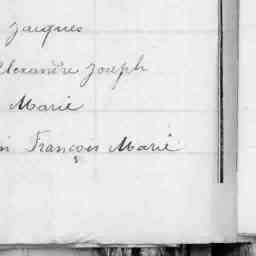 Jacques
Alexandre Joseph
Marie
François Marie